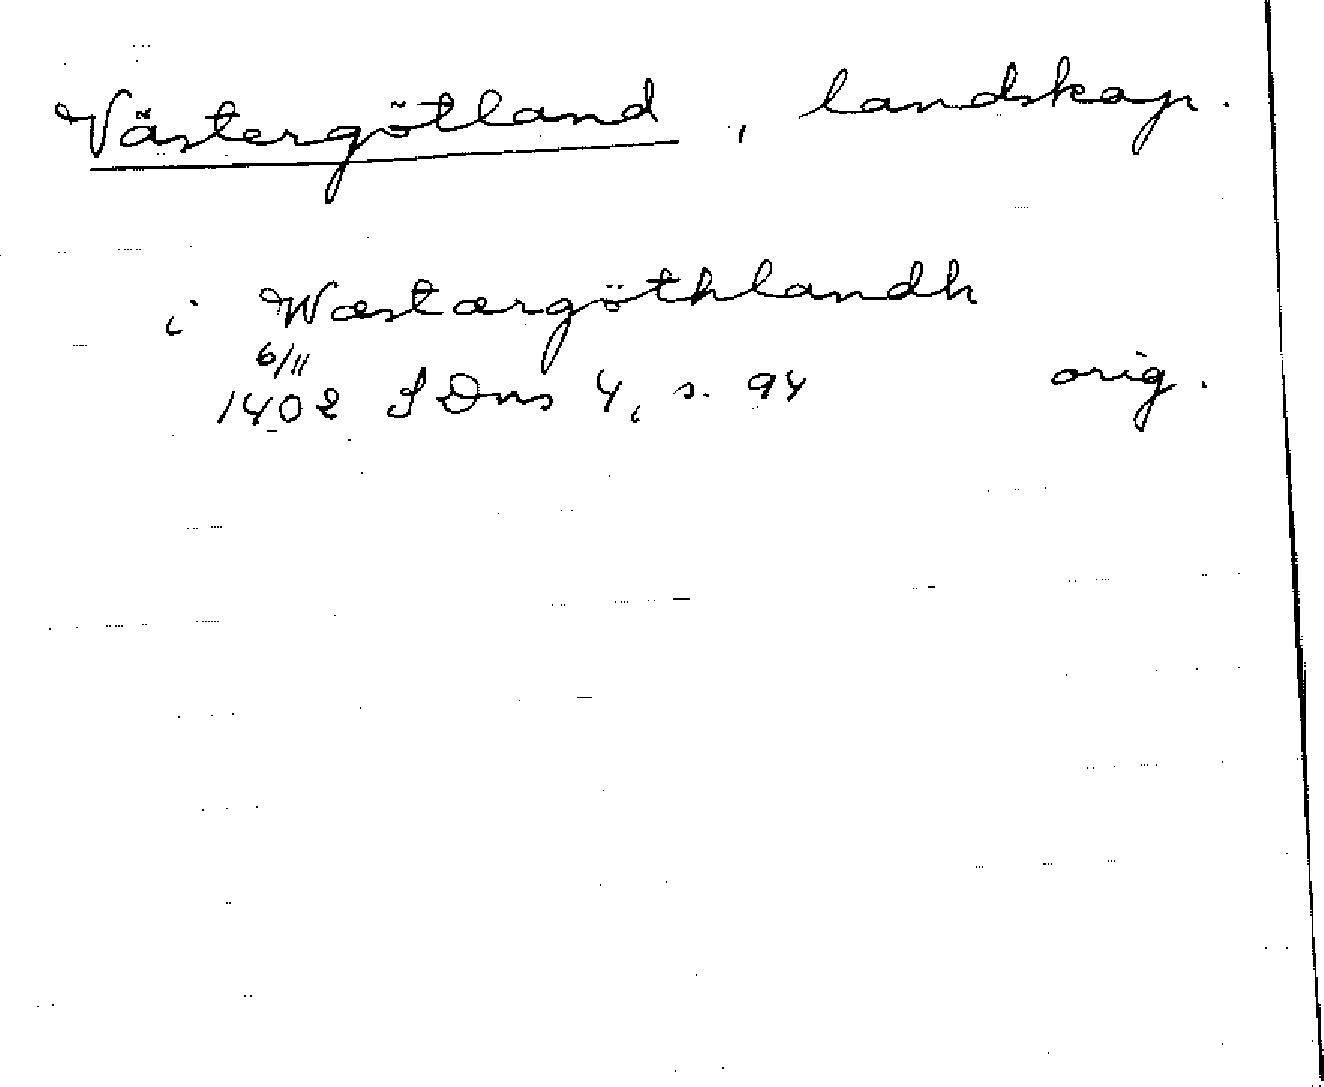 Västergötland, landskap.
i Wæstærgöthlandh
6/11
1402 SDns 4, s. 94 orig.